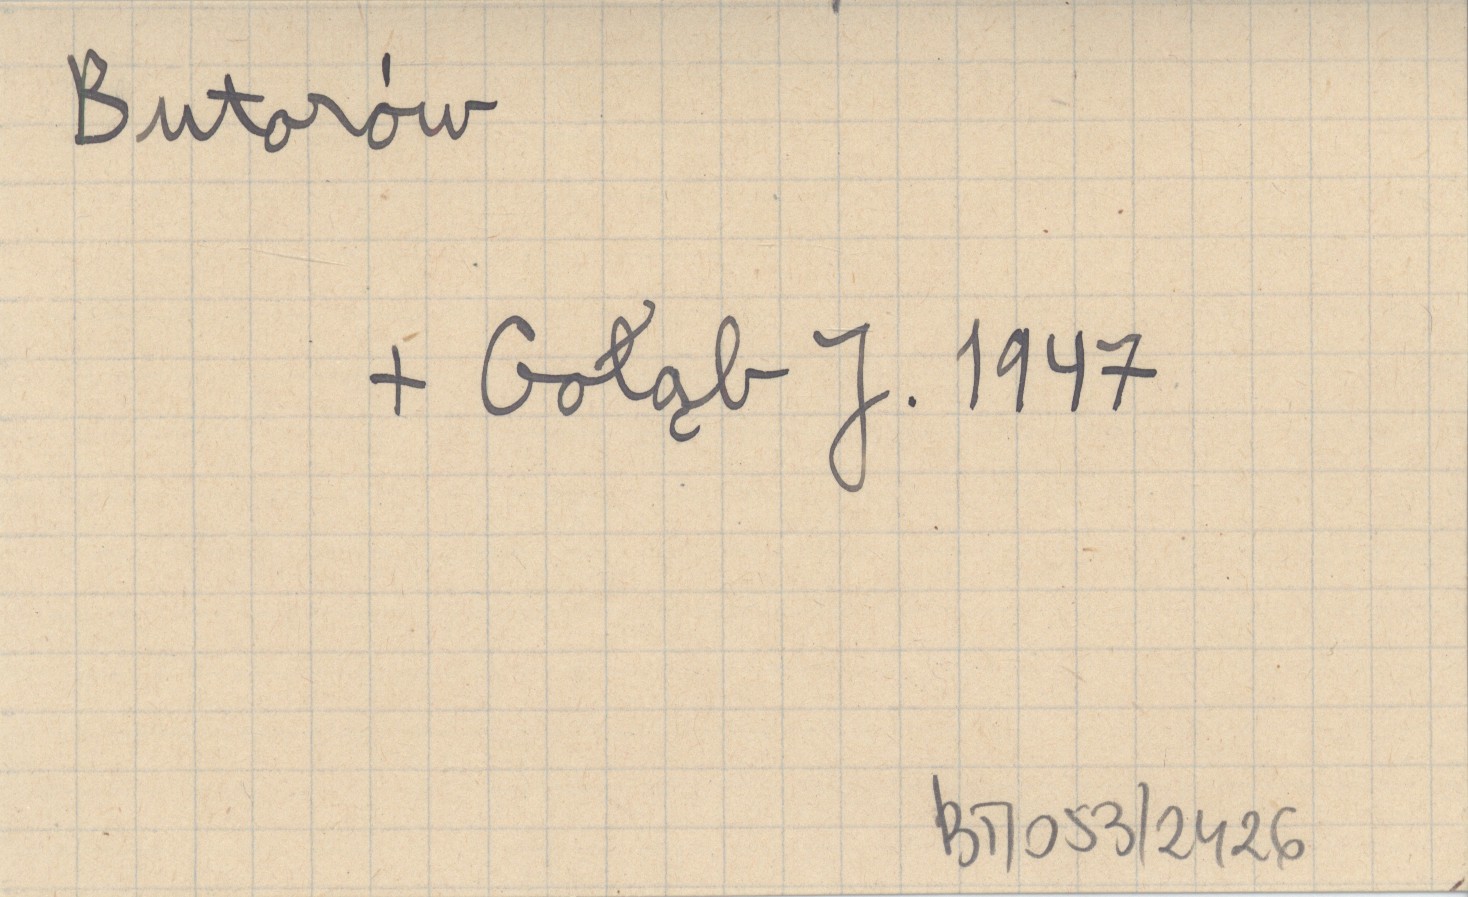 Butorów
+ Gołąb J. 1947
BT/053/2426